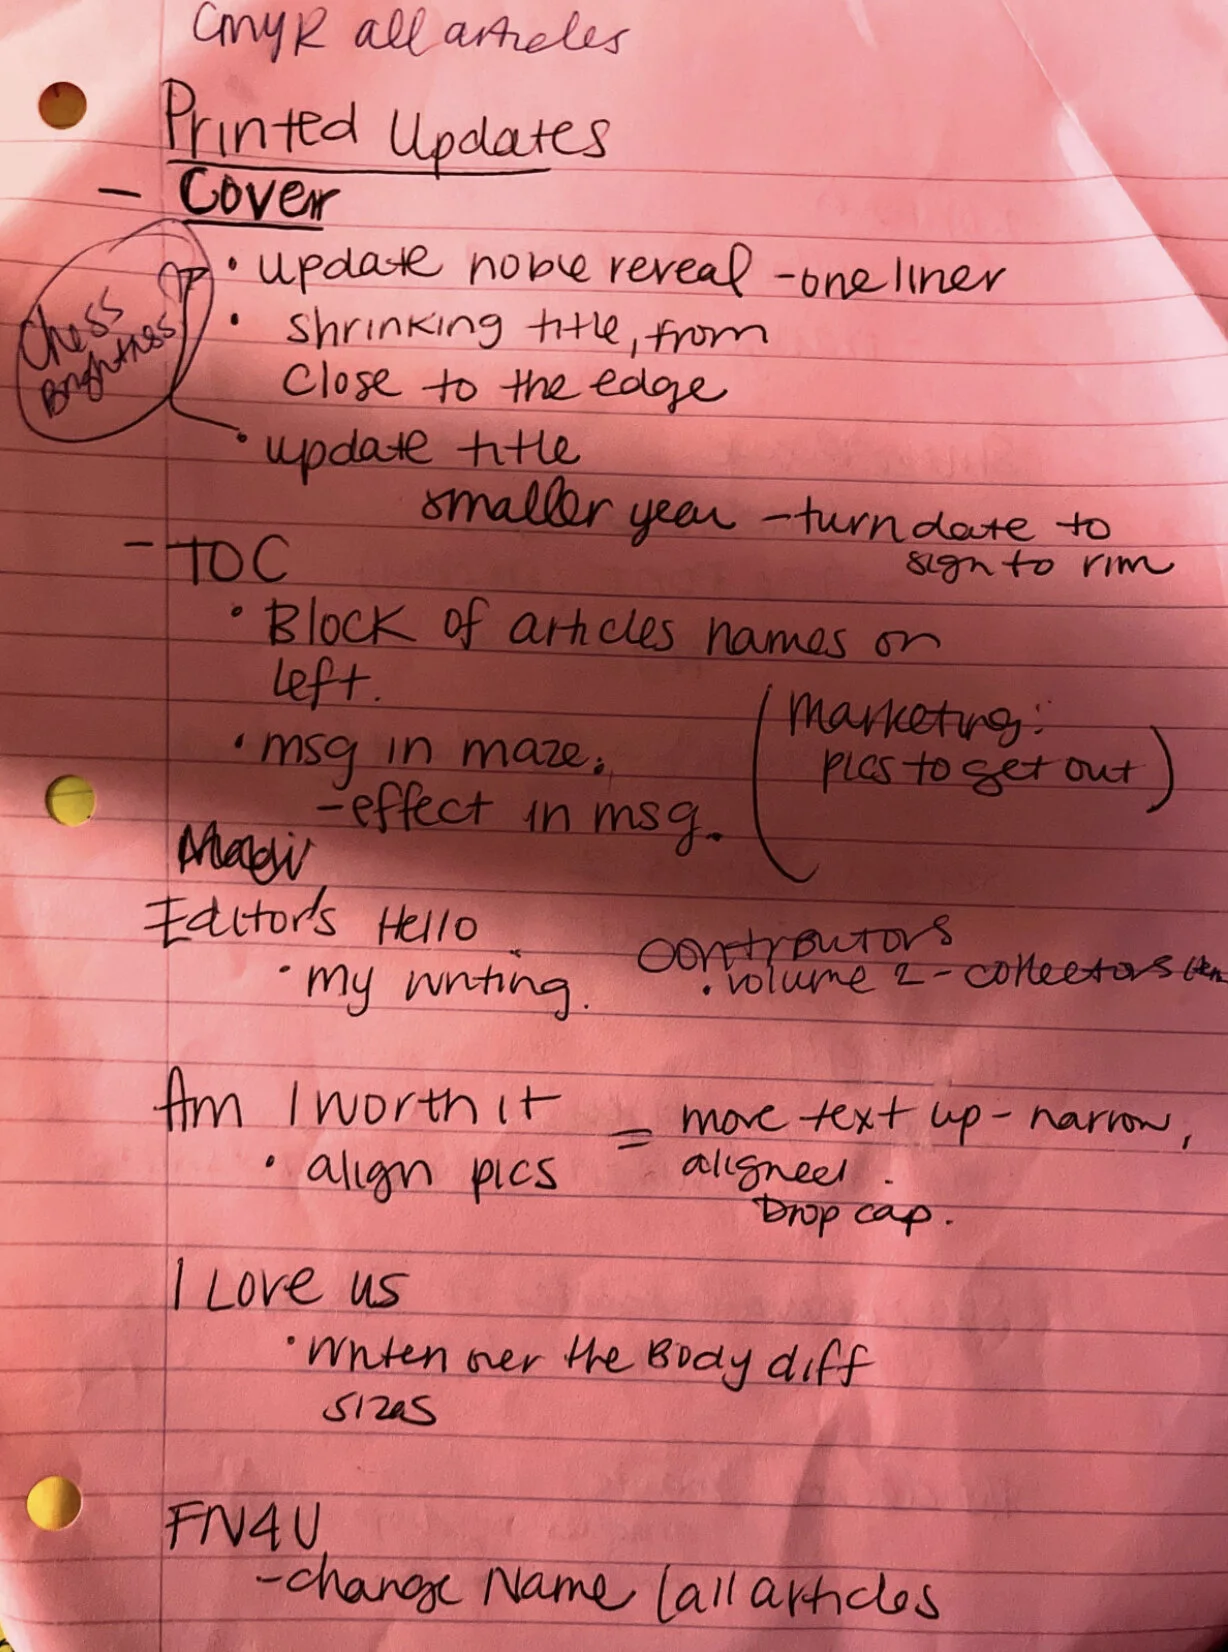 CMYK all articles
Printed Updates
- Cover
• update noble reveal - one liner
• shrinking title, from
close to the edge
Chess
Brightness
• update title
smaller year - turn date to
sign to rim
- TOC
• Block of articles names on
left.
(Marketing:
pics to get out)
• msg in maze.
- effect in msg.
Editor's Hello
• my writing.
Contributors
• volume 2 - collectors
Am I worth it
• align pics
= move text up - narrow,
aligned.
Drop cap.
I Love us
• Written over the Body diff
sizes
FN4U
- change Name (all articles